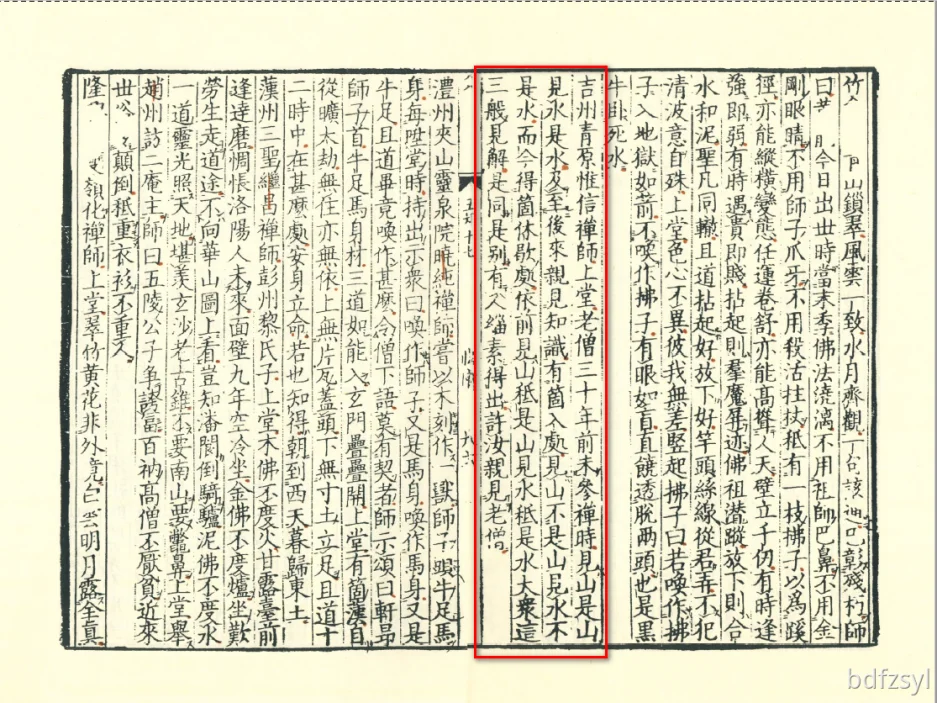 竹 山鎖翠風雲一致水月齊觀 彰殘朽師
曰 今日出世時當末季佛法澆漓不用祖師巴鼻不用金
剛眼睛不用師子爪牙不用殺活拄杖秖有一枝拂子以為蹊
徑亦能縱橫變態任運卷舒亦能高聳人天壁立千仞有時逢
強即弱有時遇貴即賤拈起則羣魔屏迹佛祖潛蹤放下則合
水和泥聖凡同轍且道拈起好放下好竿頭絲線從君弄不犯
清波意自殊上堂色心不異彼我無差竪起拂子曰若喚作拂
子入地獄如箭不喚作拂子有眼如盲直饒透脫兩頭也是黑
牛臥死水
吉州青原惟信禪師上堂老僧三十年前未參禪時見山是山
見水是水及至後來親見知識有箇入處見山不是山見水不
是水而今得箇休歇處依前見山秖是山見水秖是水大衆這
三般見解是同是別有人緇素得出許汝親見老僧
五 十七
澧州夾山靈泉院曉純禪師嘗以木刻作一獸師子頭牛足馬
身每陞堂時持出示衆曰喚作師子又是馬身喚作馬身又是
牛足且道畢竟喚作甚麽令僧下語莫有契者師示頌曰軒昂
師子首牛足馬身材三道如能入玄門疊疊開上堂有箇漢自
從曠大劫無住亦無依上無片瓦蓋頭下無寸土立足且道十
二時中在甚麽處安身立命若也知得朝到西天暮歸東土
漢州三聖繼昌禪師彭州黎氏子上堂木佛不度火甘露臺前
逢達磨惆悵洛陽人未來面壁九年空冷坐金佛不度爐坐歎
勞生走道途不向華山圖上看豈知潘閬倒騎驢泥佛不度水
一道靈光照天地堪羨玄沙老古錐不要南山要鼈鼻上堂舉
趙州訪二庵主師曰五陵公子爭誇富百衲高僧不厭貧近來
世 顛倒秖重衣衫不重人
隆 嶺化禪師上堂翠竹黃花非外境白雲明月露全真
bdfzsyl